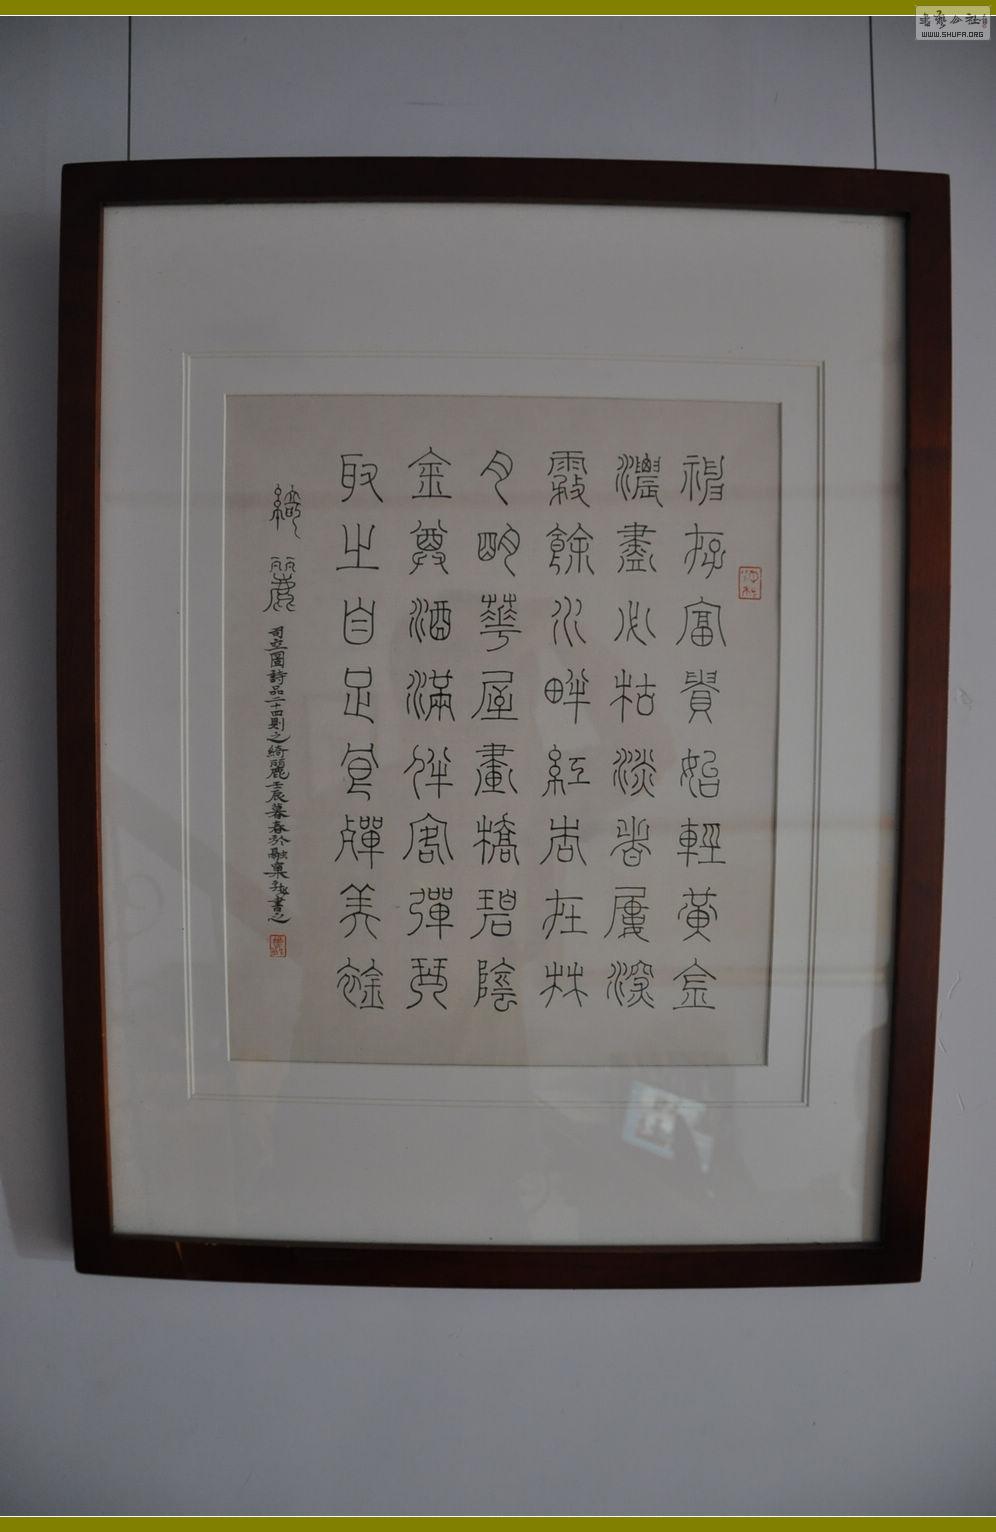 神存富貴始輕黃金
濃盡必枯淡者屢深
霧餘水畔紅杏在林
月明華屋畫橋碧陰
金尊酒滿伴客彈琴
取之自足良殫美襟
綺麗
司空圖詩品二十四則之綺麗壬辰暮春於融巢書之
WWW.SHUFA.ORG